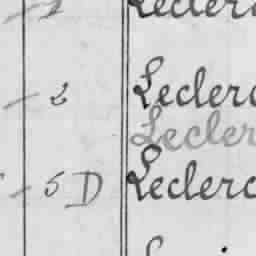 -2 Lecler
- 2 Leclerc
Lecler
- 5 D Leclerc